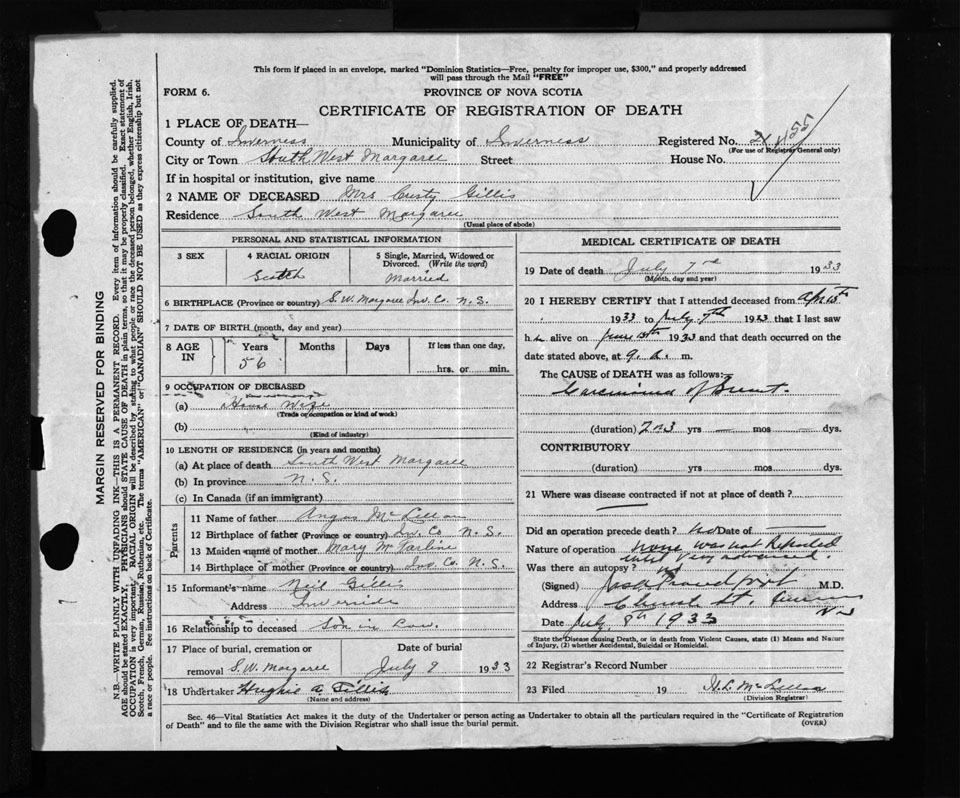 This form if placed in an envelope, marked "Dominion Statistics—Free, penalty for improper use, $300," and properly addressed
will pass through the Mail "FREE"
FORM 6.
PROVINCE OF NOVA SCOTIA
CERTIFICATE OF REGISTRATION OF DEATH
1 PLACE OF DEATH—
County of Inverness Municipality of Inverness Registered No.
(For use of Registrar General only)
City or Town South West Margaree Street House No.
If in hospital or institution, give name
2 NAME OF DECEASED Mrs Gillis
Residence South West Margaree
(Usual place of abode)
PERSONAL AND STATISTICAL INFORMATION
3 SEX 4 RACIAL ORIGIN 5 Single, Married, Widowed or
Divorced. (Write the word)
Scotch Married
6 BIRTHPLACE (Province or country) S.W. Margaree Inv. Co. N.S.
7 DATE OF BIRTH (month, day and year)
8 AGE IN Years Months Days If less than one day,
56 hrs. or min.
9 OCCUPATION OF DECEASED
(a) House Wife
(Trade or occupation or kind of work)
(b)
(Kind of industry)
10 LENGTH OF RESIDENCE (in years and months)
(a) At place of death South West Margaree
(b) In province N.S.
(c) In Canada (if an immigrant)
Parents
11 Name of father Angus McLellan
12 Birthplace of father (Province or country) Inv. Co. N.S.
13 Maiden name of mother Mary
14 Birthplace of mother (Province or country) Inv. Co. N.S.
15 Informant's name Neil Gillis
Address Inverside
16 Relationship to deceased Son in Law.
17 Place of burial, cremation or Date of burial
removal S.W. Margaree July 9 1933
18 Undertaker Hughie A.
(Name and address)
MEDICAL CERTIFICATE OF DEATH
19 Date of death July 7th 1933
(Month, day and year)
20 I HEREBY CERTIFY that I attended deceased from
1933 to July 7th 1933 that I last saw
h alive on June 1933 and that death occurred on the
date stated above, at 9. a. m.
The CAUSE of DEATH was as follows:
Carcinoma of Breast.
(duration) yrs — mos — dys.
CONTRIBUTORY
(duration) yrs mos dys.
21 Where was disease contracted if not at place of death?
Did an operation precede death? no Date of
Nature of operation
Was there an autopsy? no
(Signed) M.D.
Address
Date July 8th 1933
State the Disease causing Death, or in death from Violent Causes, state (1) Means and Nature
of Injury, (2) whether Accidental, Suicidal or Homicidal.
22 Registrar's Record Number
23 Filed 19
(Division Registrar)
Sec. 46—Vital Statistics Act makes it the duty of the Undertaker or person acting as Undertaker to obtain all the particulars required in the "Certificate of Registration
of Death" and to file the same with the Division Registrar who shall issue the burial permit.
(OVER)
MARGIN RESERVED FOR BINDING
N.B.—WRITE PLAINLY WITH UNFADING INK—THIS IS A PERMANENT RECORD. Every item of information should be carefully supplied.
AGE should be stated EXACTLY. PHYSICIANS should STATE CAUSE OF DEATH in plain terms, so that it may be properly classified. Exact statement of
OCCUPATION is very important. RACIAL ORIGIN will be described by stating to what people or race the deceased person belonged, whether English, Irish,
Scotch, French, German, Russian, Ruthenian, etc. The terms "AMERICAN" or "CANADIAN" SHOULD NOT BE USED as they express citizenship but not
a race or people. See instructions on back of Certificate.